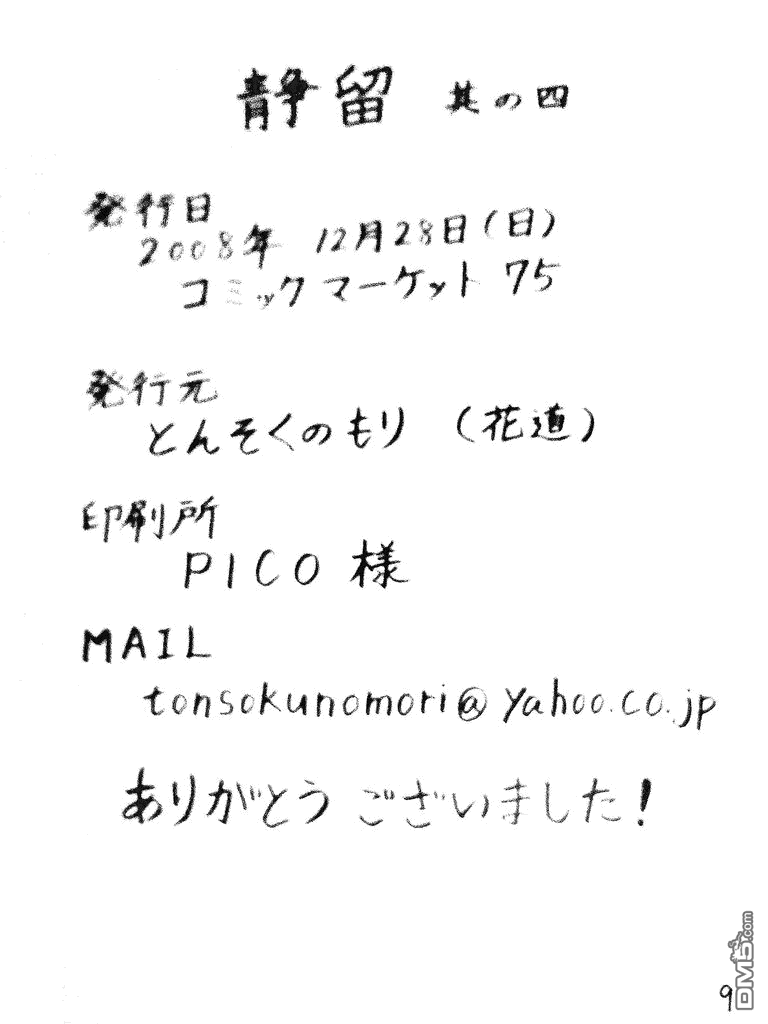 静留 其の四
発行日
2008年 12月28日(日)
コミックマーケット 75
発行元
とんそくのもり (花道)
印刷所
PICO 様
MAIL
tonsokunomori@yahoo.co.jp
ありがとうございました!
9
DM5.com